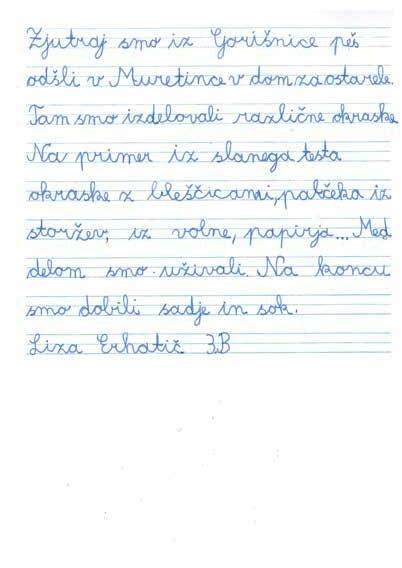 Zjutraj smo iz Gorišnice peš
odšli v Muretince v dom za ostarele.
Tam smo izdelovali različne okraske
Na primer iz slanega testa
okraske z bleščicami, palčeka iz
storžev, iz volne, papirja... Med
delom smo uživali. Na koncu
smo dobili sadje in sok.
Liza Erhatič 3.B